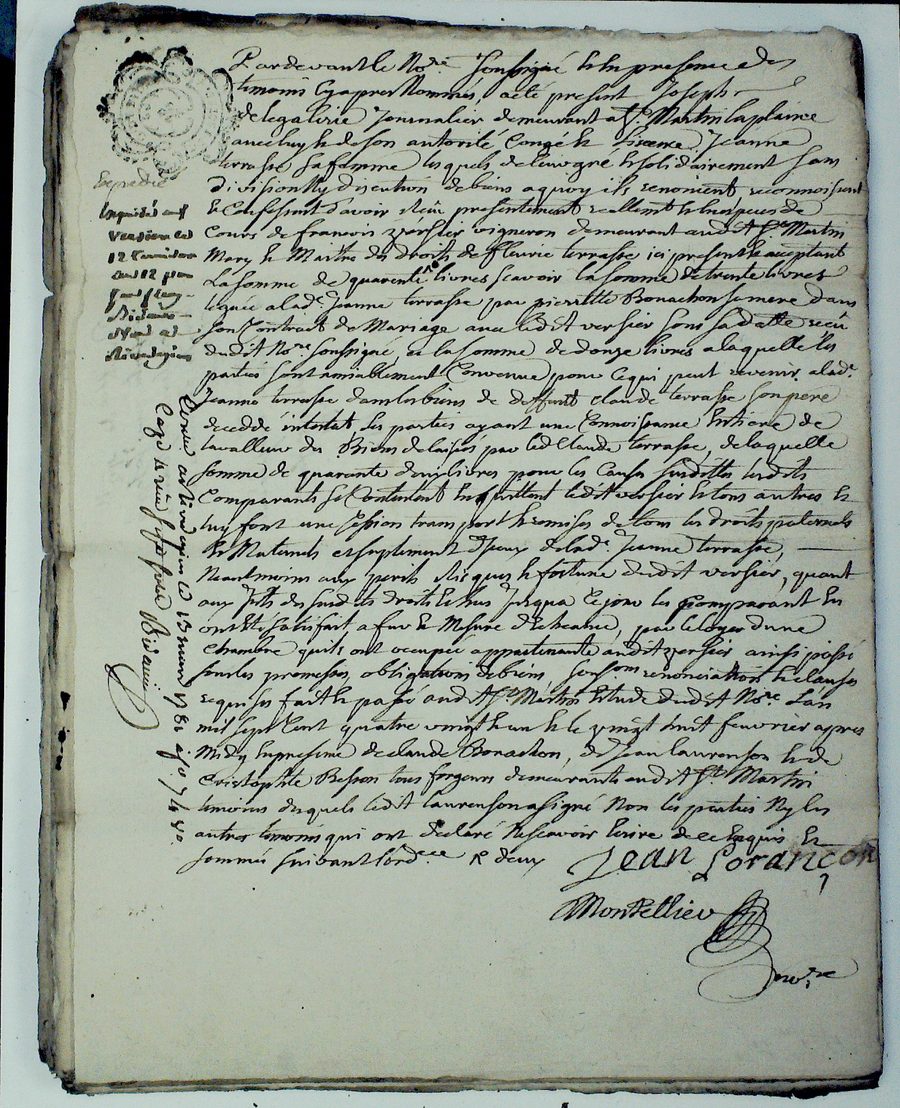 Pardevant le No.re soussigné & en presence des
temoins cy apres Nommés, a été present Joseph
delegalerie Journalier demeurant a St. Martin laplaine
avec luy & de son autorité Congé & licence, Jeanne
terrasse sa femme lesquels de leur gré & solidairement sans
division Ny discution de biens a quoy ils renoncent reconnoissent
& Confessent d'avoir Reçu presentement reellement & en especes de
Cours de francois versier vigneron demeurant audit St. Martin
Mary & Maitre des droits de fleurie terrasse ici present & acceptant
La somme de quarente livres scavoir la somme de trente livres
leguée a lad.e Jeanne terrasse par pierrette Bonachon sa mere dans
son Contract de Mariage avec ledit versier sous sa datte reçu
dudit No.re soussigné, & la somme de douze livres a laquelle les
parties sont amiablement Convenue pour ce qui peut revenir a lad.e
Jeanne terrasse dans les biens de deffunt claude terrasse son pere
decedé intestat, les parties ayant une Connoissance Entiere de
la valleur des Biens delaissés par led. Claude terrasse, de laquelle
somme de quarante deux livres pour les Causes susdittes lesdits
Comparants se Contentent En quittent ledit versier & tous autres &
luy font une Cession transport & remises de tous les droits paternels
& Maternels et suplement d'iceux de lad.e Jeanne terrasse,
Neantmoins aux perils Risques & fortune dudit versier, quant
aux Jnts des susdits droits Echus Jusqua Ce jour les Comparant En
ont été satisfait a fur & Mesure d'Echeance, par le loyer d'une
Chambre qu'ils ont occupée appartenante audit versier ainsi passé
sous les promesses, obligations de biens, soumissons renonciation & clauses
requises fait & passé audit St. Martin Etude dudit No.re L'an
mil sept Cent quatre vingt & un & le vingt huit fevrier apres
Midy En presence de claude Bonachon, de Jean laurenson & de
Cristophle Besson tous forgeurs demeurants audit St. Martin
temoins desquels ledit laurenson a signé Non les parties Ny les
autres temoins qui ont declaré Ne scavoir Ecrire de ce Enquis &
sommés suivant l'ord.ce R deux
Jean Lorançon
Montellier
no.re
Expedié
versier le
12
Rivedegier
Controllé a rivedegier le 13 mars 1781